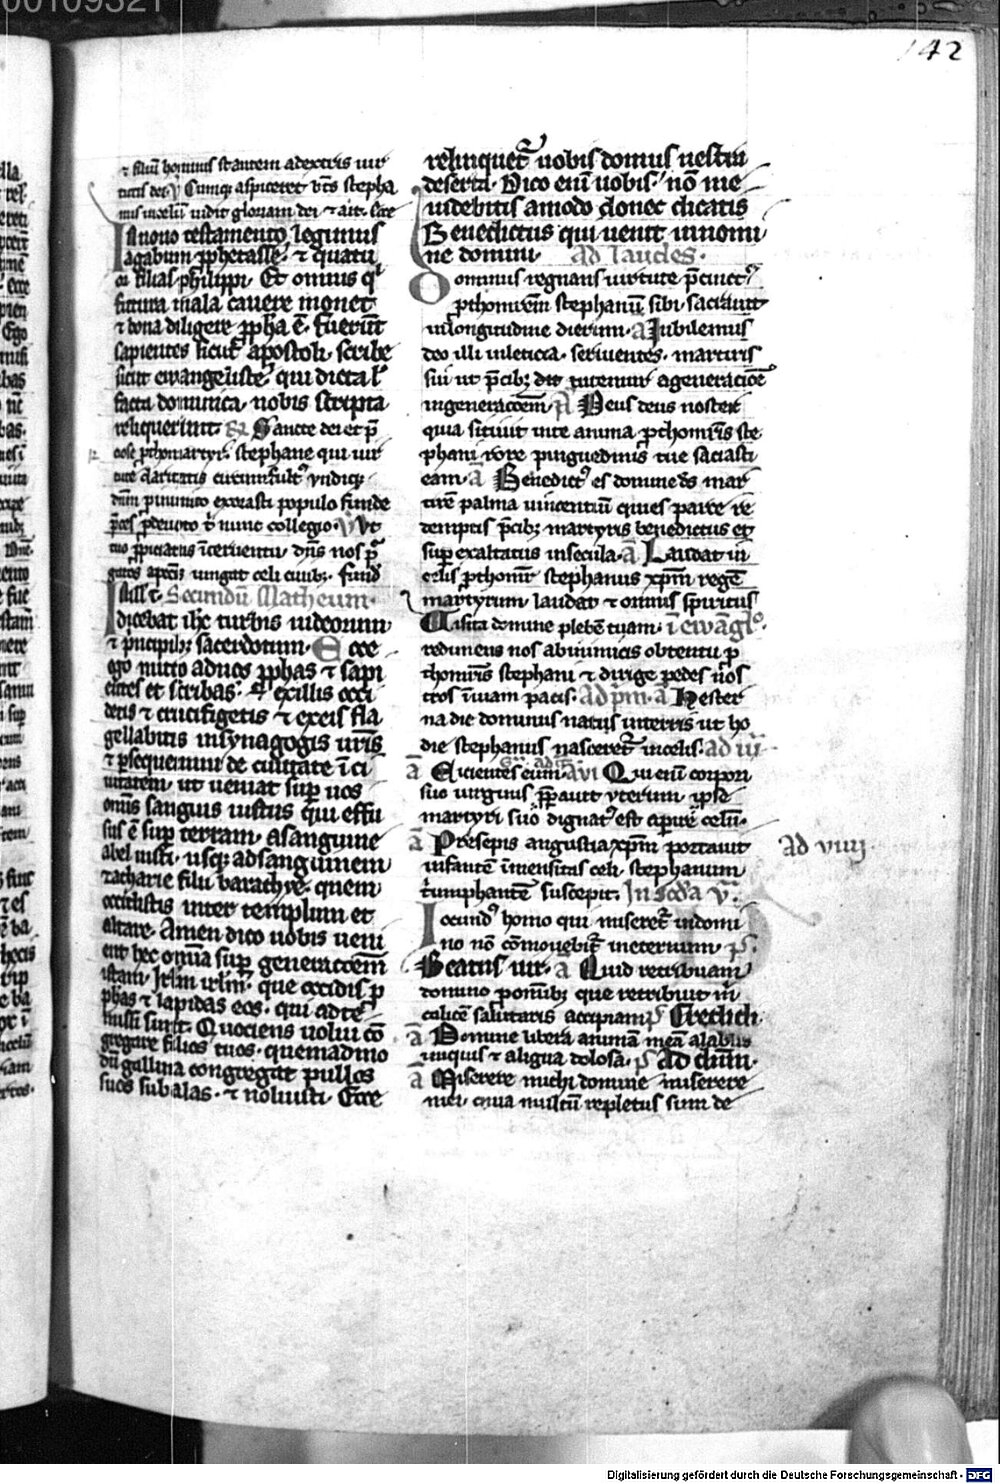 00109321
142
⁊ filiū hominis stantem adextris uir
tutis dei. ℣ Cumq; aspiceret bt̄s stepha
nus incelū uidit gloriam dei ⁊ ait. Ecce
In nouo testamento legimus
agabum ꝓphetasse. ⁊ quatu
or filias philippi. Et omnis qͥ
futura mala cauere monet
⁊ bona diligere ꝓpha ē. fuerūt
sapientes sicut apostoli. scribe
sicut ewangeliste. qui dicta ł
facta dominica. nobis scripta
reliquerunt. Sancte dei et p̄
ciose ꝓthomartyr stephane qui uir
tute caritatis circumfultꝰ yndiqꝫ
dn̄m pro inimico exorasti populo funde
p̄ces ꝓ deuoto t̄ nunc collegio. ℣ Vt
tuo ꝓpiciatus īteruentu. dn̄s nos pͥ
gatos a pctīs iungat celi ciuibꝫ. fund
In ill t. Secundū Matheum.
dicebat ih̄c turbis iudeorum
⁊ p̄ncipibꝫ sacerdotum. Ecce
ego mitto aduos ꝓphas ⁊ sapi
entes et scribas. ⁊ exillis occi
detis ⁊ crucifigetis ⁊ exeis fla
gellabitis insynagogis ur̄is
⁊ ꝑsequemini de ciuitate ī ci
uitatem. ut ueniat suꝑ uos
omīs sanguis iustus qui effu
sus ē suꝑ terram. Asanguine
abel iusti. usqꝫ adsanguinem
zacharie filii barachye. quem
occidistis inter templum et
altare. Amen dico uobis ueni
ent hec omīa suꝑ generacōem
istam. Jrl̄m irl̄m. que occidis ꝓ
phas ⁊ lapidas eos. qui adte
missi sunt. Quociens uolui cō
gregare filios tuos. quemadmo
dū gallina congregat pullos
suos subalas. ⁊ noluisti. Ecce
relinquetᷣ uobis domus uestra
deserta. Dico enī uobis. nō me
uidebitis amodo donec dicatis
Benedictus qui uenit innomi
ne domini. Ad laudes.
Dominus regnans uirtute p̄cinctꝰ
ꝓthomr̄em stephanū sibi sacrauit
inlongitudine dierum. a Jubilemus
deo illi inleticia. seruientes. martiris
sui ut p̄cibꝫ tutemur ageneracōe
ingeneracōem. a Deus deus noster
qua sitiuit inte anima ꝓthomr̄is ste
phani rore pinguedinis tue saciasti
eam. a Benedictꝰ es domine ds̄ mar
tirē palma uincentiū cuius patre re
demptis p̄cibꝫ martyris benedictus et
suꝑ exaltatus insecula. a Laudat in
celis ꝓthomr̄ stephanus xp̄m regē
martyrum. laudat ⁊ omnis spiritus
Uisita domine plebē tuam. ī ewāglͦ.
redimens nos abinimicis obtentu ꝓ
thomr̄is stephani ⁊ dirige pedes nōs
tros īuiam pacis. Ad p̄m. a Hester
na die dominus natus interris ut ho
die stephanus nasceretᷣ incelis. ad iii
a Eicientes eum. ad vi Qui enī corpori
suo uirginis ꝑpauit vterum. ipse
martyri suo dignatꝰ est aꝑire celū.
a Presepis augustia xp̄m portauit
infantē īmensitas celi. stephanum
tͥumphantē suscepit. In scd̄a v̄.
Ad viiij
Iocundꝰ homo qui miseretᷣ indomi
no nō cōmouebitᷣ ineternum. ps.
Beatus uir. a Quid retribuam
domino ꝓ omībꝫ que retribuit m̄
calicē salutaris accipiam. ps Credidi.
a Domine libera animā meā alabiis
iniquis ⁊ alingua dolosa. ps Ad dn̄m.
a Miserere michi domine miserere
mei. quia multū repletus sum de
Digitalisierung gefördert durch die Deutsche Forschungsgemeinschaft - DFG